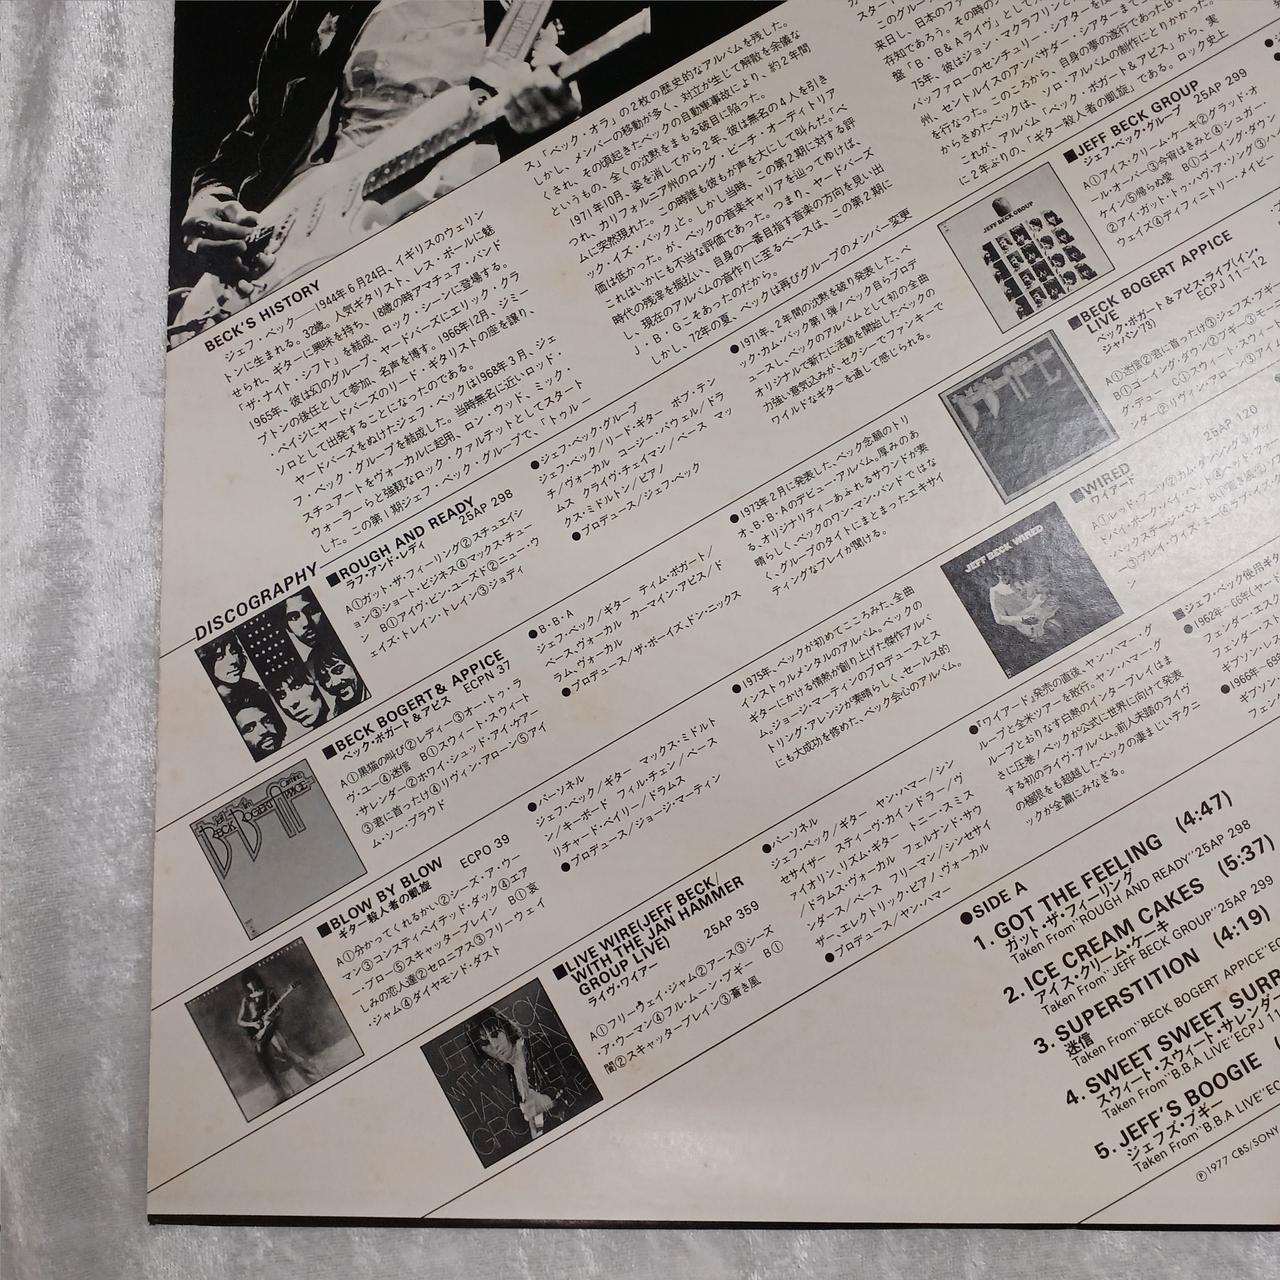 BECK'S HISTORY
ジェフ・ベック——1944年6月24日、イギリスのウェリン
トンに生まれる。32歳。人気ギタリスト、レス・ポールに魅
せられ、ギターに興味を持ち、18歳の時アマチュア・バンド
「ザ・ナイト・シフト」を結成、ロック・シーンに登場する。
1965年、彼は幻のグループ、ヤードバーズにエリック・クラ
プトンの後任として参加、名声を博す。1966年12月、ジミー
・ペイジにヤードバーズのリード・ギタリストの座を譲り、
ソロとして出発することになったのである。
ヤードバーズをぬけたジェフ・ベックは1968年3月、ジェ
フ・ベック・グループを結成した。当時無名に近いロッド・
スチュアートをヴォーカルに起用、ロン・ウッド、ミック・
ウォーラーらと強靱なロック・クァルテットとしてスタート
した。この第1期ジェフ・ベック・グループで、「トゥルー
ス」「ベック・オラ」の2枚の歴史的なアルバムを残した。
しかし、メンバーの移動が多く、対立が生じて解散を余儀な
くされ、その頃起きたベックの自動車事故により、約2年間
というもの、全くの沈黙をまもる破目に陥った。
1971年10月、姿を消してから2年、彼は無名の4人を引き
つれ、カリフォルニア州のロング・ビーチ・オーディトリア
ムに突然現れた。この時誰も彼もが声を大にして叫んだ。「ベ
ック・イズ・バック」と。しかし当時、この第2期に対する評
価は低かった。が、ベックの音楽キャリアを辿ってゆけば、
これはいかにも不当な評価であった。つまり、ヤードバーズ
時代の残滓を振払い、自身の一番目指す音楽の方向を見い出
し、現在のアルバムの音作りに至るベースは、この第2期に
J・B・Gこそあったのだから。
しかし、72年の夏、ベックは再びグループのメンバー変更
DISCOGRAPHY
■ROUGH AND READY
ラフ・アンド・レディ 25AP 298
A①ガット・ザ・フィーリング②スチュエイシ
ョン③ショート・ビジネス④マックス・チュー
ン B①アイヴ・ビン・ユーズド②ニュー・ウ
ェイズ・トレイン・トレイン③ジョディ
●ジェフ・ベック・グループ
ジェフ・ベック/リード・ギター ボブ・テン
チ/ヴォーカル コージー・パウエル/ドラ
ムス クライヴ・チェイマン/ベース マッ
クス・ミドルトン/ピアノ
●プロデュース/ジェフ・ベック
●1971年、2年間の沈黙を破り発表した、ベ
ック・カム・バック第1弾!ベック自らプロデ
ュースし、ベックのアルバムとして初の全曲
オリジナルで新たに活動を開始したベックの
力強い意気込みが、セクシーでファンキーで
ワイルドなギターを通して感じられる。
■BECK BOGERT & APPICE
ベック・ボガート&アピス ECPN 37
A①黒猫の叫び②レディー③オー・トゥ・ラ
ヴ・ユー④迷信 B①スウィート・スウィート
サレンダー②ホワイ・シュッド・アイ・ケアー
③君に首ったけ④リヴィン・アローン⑤アイ
ム・ソー・プラウド
●B・B・A
ジェフ・ベック/ギター ティム・ボガート/
ベース、ヴォーカル カーマイン・アピス/ド
ラム、ヴォーカル
●プロデュース/ザ・ボーイズ、ドン・ニックス
●1973年2月に発表した、ベック念願のトリ
オ、B・B・Aのデビュー・アルバム。厚みのあ
る、オリジナリティーあふれるサウンドが素
晴らしく、ベックのワン・マン・バンドではな
く、グループのタイトにまとまったエキサイ
ティングなプレイが聞ける。
■BLOW BY BLOW
ギター殺人者の凱旋 ECPO 39
A①分かってくれるかい②シーズ・ア・ウー
マン③コンスティペイテッド・ダック④エア
ー・ブロー⑤スキャッターブレイン B①哀
しみの恋人達②セロニアス③フリーウェイ
・ジャム④ダイヤモンド・ダスト
●パーソネル
ジェフ・ベック/ギター マックス・ミドルト
ン/キーボード フィル・チェン/ベース
リチャード・ベイリー/ドラムス
●プロデュース/ジョージ・マーティン
●1975年、ベックが初めてこころみた、全曲
インストゥルメンタルのアルバム。ベックの
ギターにかける情熱が創り上げた傑作アルバ
ム。ジョージ・マーティンのプロデュースとス
トリング・アレンジが素晴らしく、セールス的
にも大成功を修めた、ベック会心のアルバム。
■LIVE WIRE(JEFF BECK/
WITH THE JAN HAMMER
GROUP LIVE)
ライヴ・ワイアー 25AP 359
A①フリーウェイ・ジャム②アース③シーズ
・ア・ウーマン④フル・ムーン・ブギー B①
闇②スキャッターブレイン③蒼き風
●パーソネル
ジェフ・ベック/ギター ヤン・ハマー/シン
セサイザー スティーヴ・カインドラー/ヴ
ァイオリン、リズム・ギター トニー・スミス
/ドラムス・ヴォーカル フェルナンド・サウ
ンダース/ベース フリーマン/シンセサイ
ザー、エレクトリック・ピアノ、ヴォーカル
●プロデュース/ヤン・ハマー
●『ワイアード』発売の直後、ヤン・ハマー・グ
ループと全米ツアーを敢行。ヤン・ハマー・グ
ループとおりなす白熱のインタープレイはま
さに圧巻!ベックが公式に世界に向けて発表
する初のライヴ・アルバム。前人未踏のライヴ
の極限をも超越したベックの凄まじいテクニ
ックが全篇にみなぎる。
■JEFF BECK GROUP
ジェフ・ベック・グループ 25AP 299
A①アイス・クリーム・ケーキ②グラッド・オ
ール・オーバー③今宵はきみと④シュガー・
ケイン⑤帰らぬ愛 B①ゴーイング・ダウン
②アイ・ガット・トゥ・ハヴ・ア・ソング③ハ
ウェイズ④ディフィニトリー・メイビー
■BECK BOGERT APPICE
LIVE
ベック・ボガート&アピス・ライヴ(イン・
ジャパン'73) ECPJ 11~12
A①迷信②君に首ったけ③ジェフズ・ブギー
B①ゴーイング・ダウン②ブギー③モー
グ・デュー C①スウィート・スウ
ンダー②リヴィン・アローン③アイム
■WIRED
ワイアード 25AP 120
A①レッド・ブーツ②カム・ダンシング③グッ
■ジェフ・ベック使用ギタ
●1962年~66年(ヤー
フェンダー・エスク
フェンダー・スト
ギブソン・レス
●1966年~69年
ギブソン・
フェン
来日し、日本のファ
存知であろう。その時の
盤「B・B&Aライヴ」として
75年、彼はジョン・マクラフリンと
バッファローのセンチュリー・シアターを
州、セントルイスのアンバサダー・シアターまで
を行なった。このころから、自身の夢の遂行であったB・
からさめたベックは、ソロ・アルバムの制作にとりかかった。
これが、アルバム「ベック・ボガート&アピス」から、実
に2年ぶりの、「ギター殺人者の凱旋」である。ロック史上
●SIDE A
1. GOT THE FEELING (4:47)
ガット・ザ・フィーリング
Taken From "ROUGH AND READY" 25AP 298
2. ICE CREAM CAKES (5:37)
アイス・クリーム・ケーキ
Taken From "JEFF BECK GROUP" 25AP 299
3. SUPERSTITION (4:19)
迷信
Taken From "BECK BOGERT APPICE" EC
4. SWEET SWEET SURR
スウィート・スウィート・サレンダー
Taken From "B.B.A LIVE" ECPJ 11
5. JEFF'S BOOGIE
ジェフズ・ブギー
Taken From "B.B.A LIVE" EC
Ⓟ1977 CBS/SONY